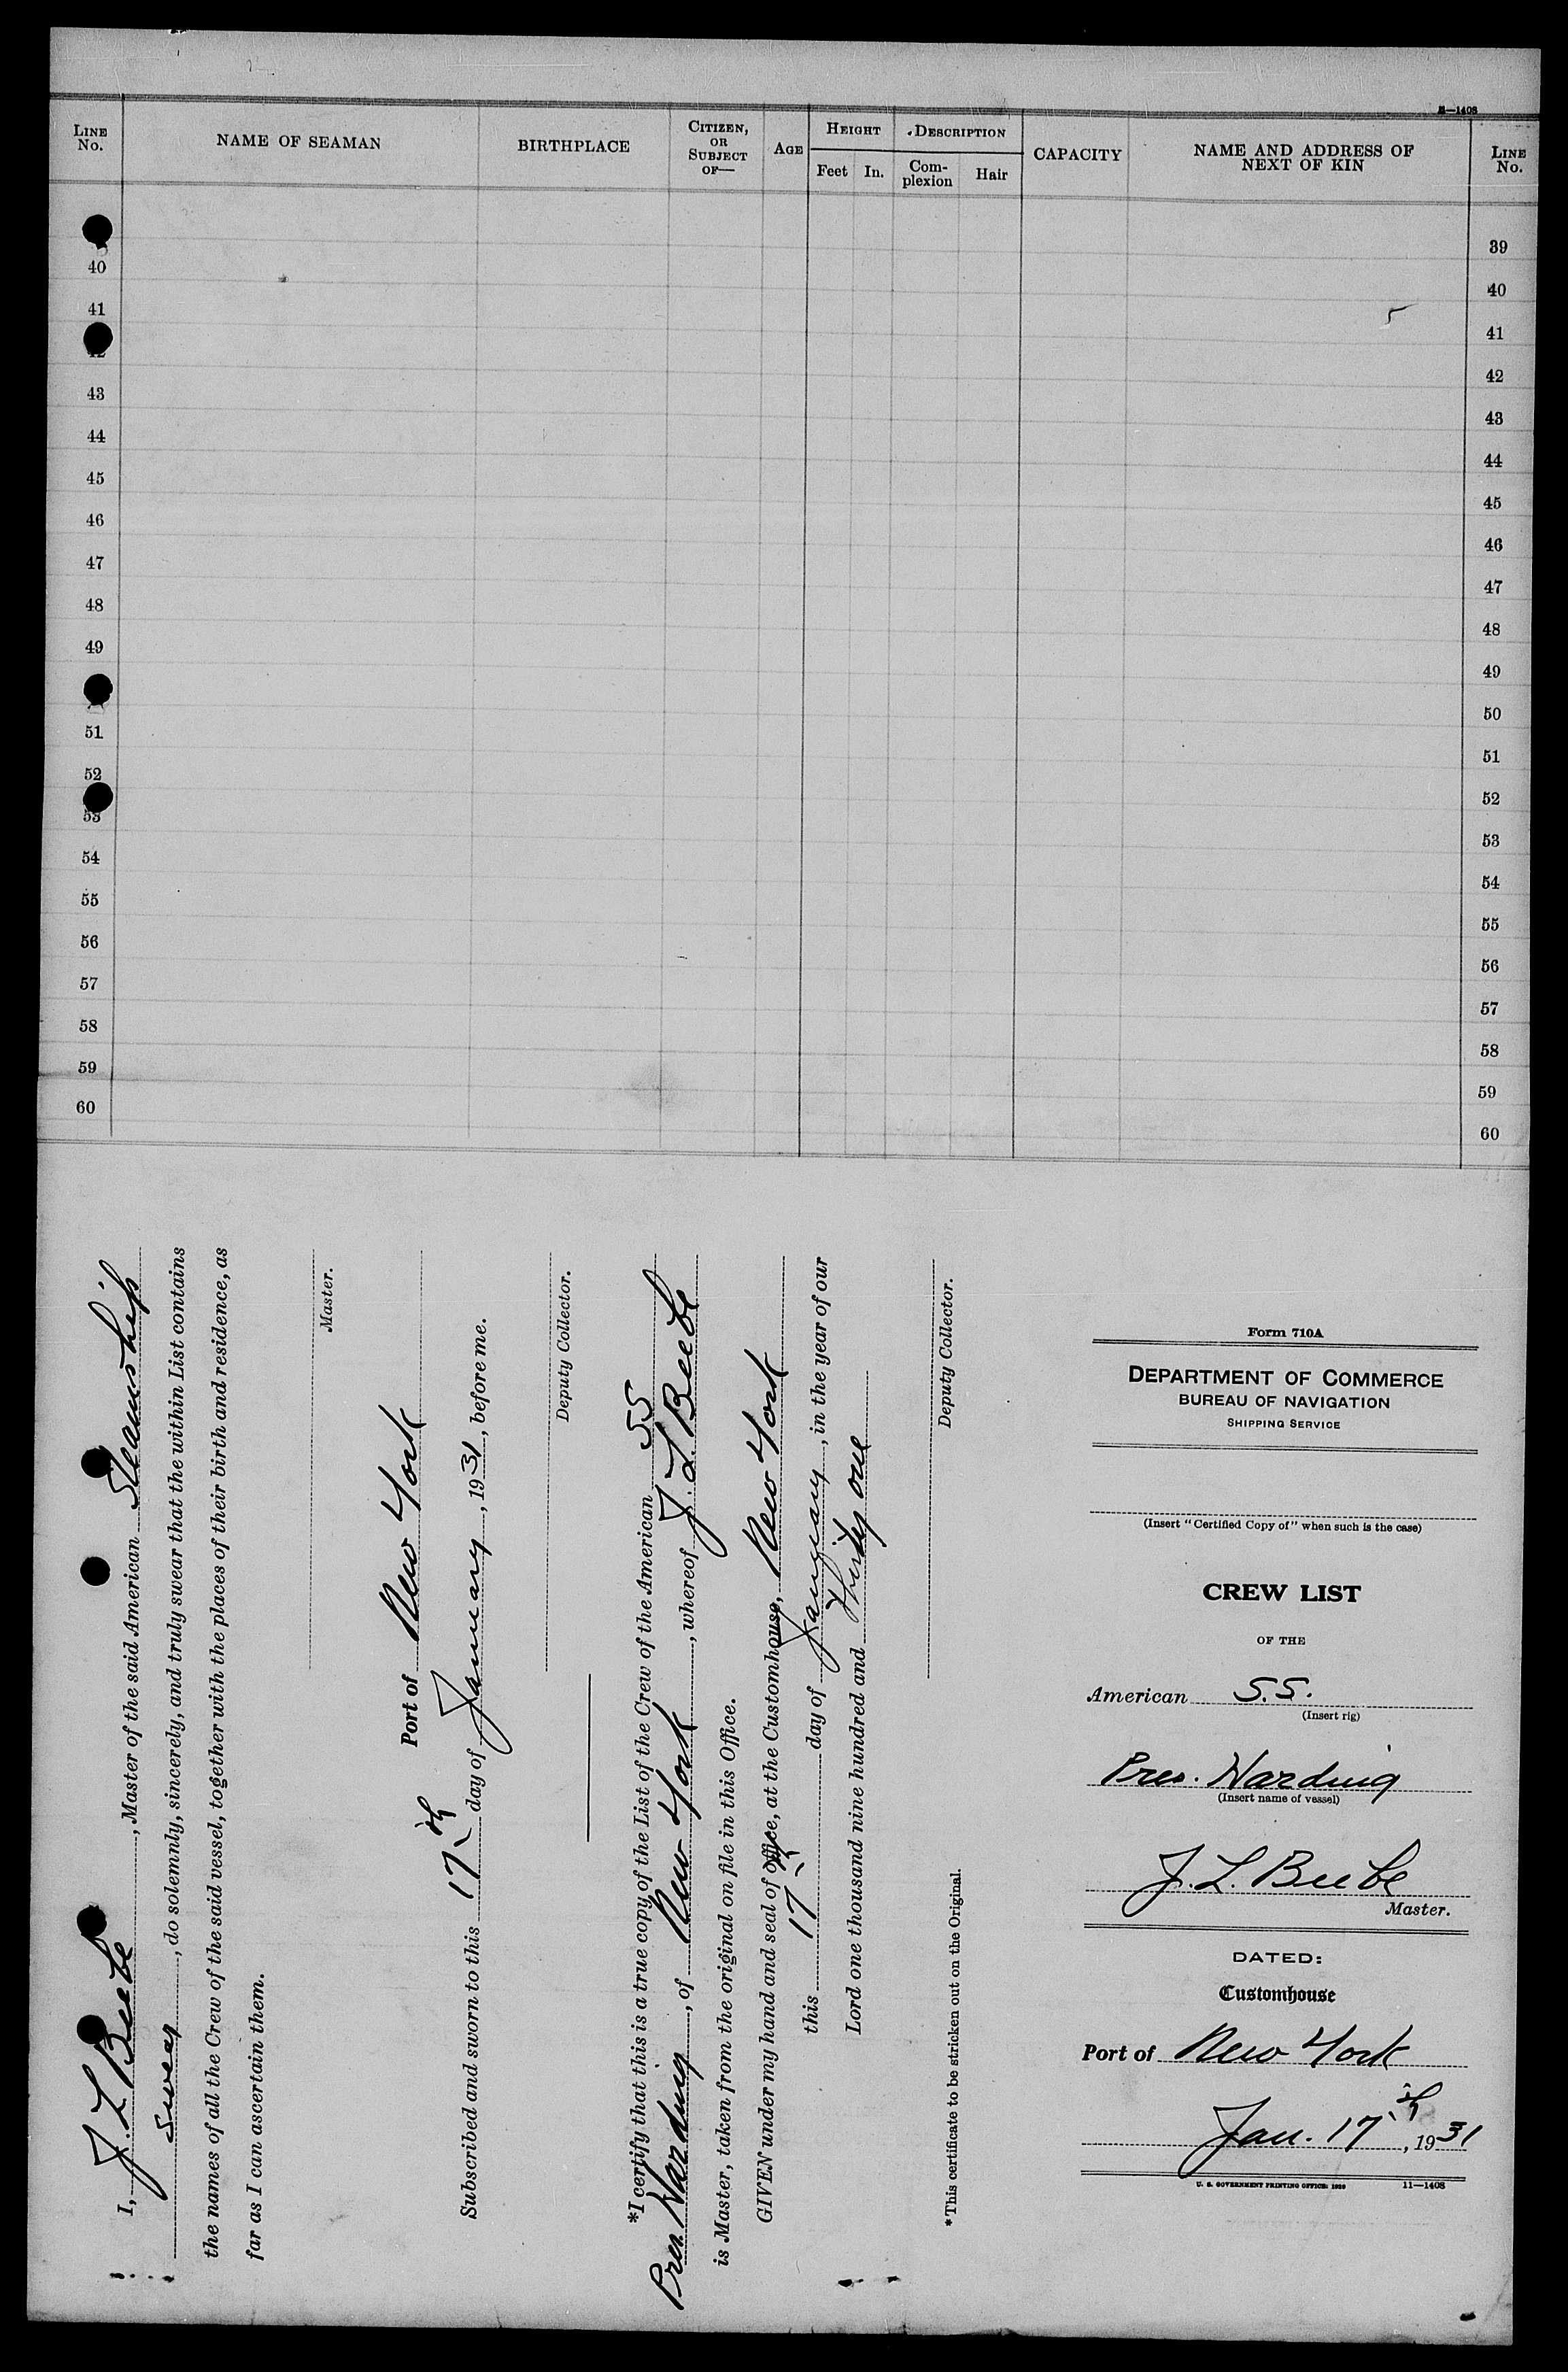 11—1408
LINE No.
NAME OF SEAMAN
BIRTHPLACE
CITIZEN, OR SUBJECT OF—
AGE
HEIGHT
Feet In.
DESCRIPTION
Complexion Hair
CAPACITY
NAME AND ADDRESS OF NEXT OF KIN
LINE No.
39
40 40
41 41
42 42
43 43
44 44
45 45
46 46
47 47
48 48
49 49
50
51 51
52 52
53 53
54 54
55 55
56 56
57 57
58 58
59 59
60 60
I, J. L Beebe, Master of the said American Steamship
swear, do solemnly, sincerely, and truly swear that the within List contains
the names of all the Crew of the said vessel, together with the places of their birth and residence, as
far as I can ascertain them.
Master.
Port of New York
Subscribed and sworn to this 17th day of January, 1931, before me.
Deputy Collector.
*I certify that this is a true copy of the List of the Crew of the American SS
Pres. Harding, of New York, whereof J. L. Beebe
is Master, taken from the original on file in this Office.
GIVEN under my hand and seal of office, at the Customhouse, New York
this 17th day of January, in the year of our
Lord one thousand nine hundred and Thirty one
Deputy Collector.
*This certificate to be stricken out on the Original.
Form 710A
DEPARTMENT OF COMMERCE
BUREAU OF NAVIGATION
SHIPPING SERVICE
(Insert "Certified Copy of" when such is the case)
CREW LIST
OF THE
American S.S.
(Insert rig)
Pres. Harding
(Insert name of vessel)
J. L. Beebe
Master.
DATED:
Customhouse
Port of New York
Jan. 17th, 1931
U. S. GOVERNMENT PRINTING OFFICE: 11—1408